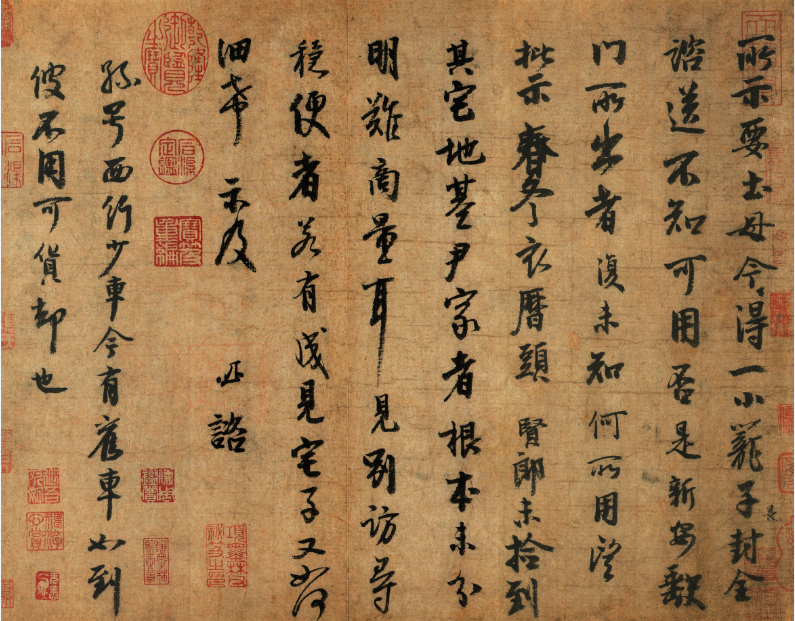 所示要土母今得一小籠子封全
諮送不知可用否是新安缺
门所出者復未知何所用望
批示春冬衣曆頭賢郎未拾到
其宅地基尹家者根本未分
明難商量耳見別訪尋
穩便者若有成見宅子又如何
細希示及 必諮
孫号西行少車今有舊車如到
彼不用可貨却也